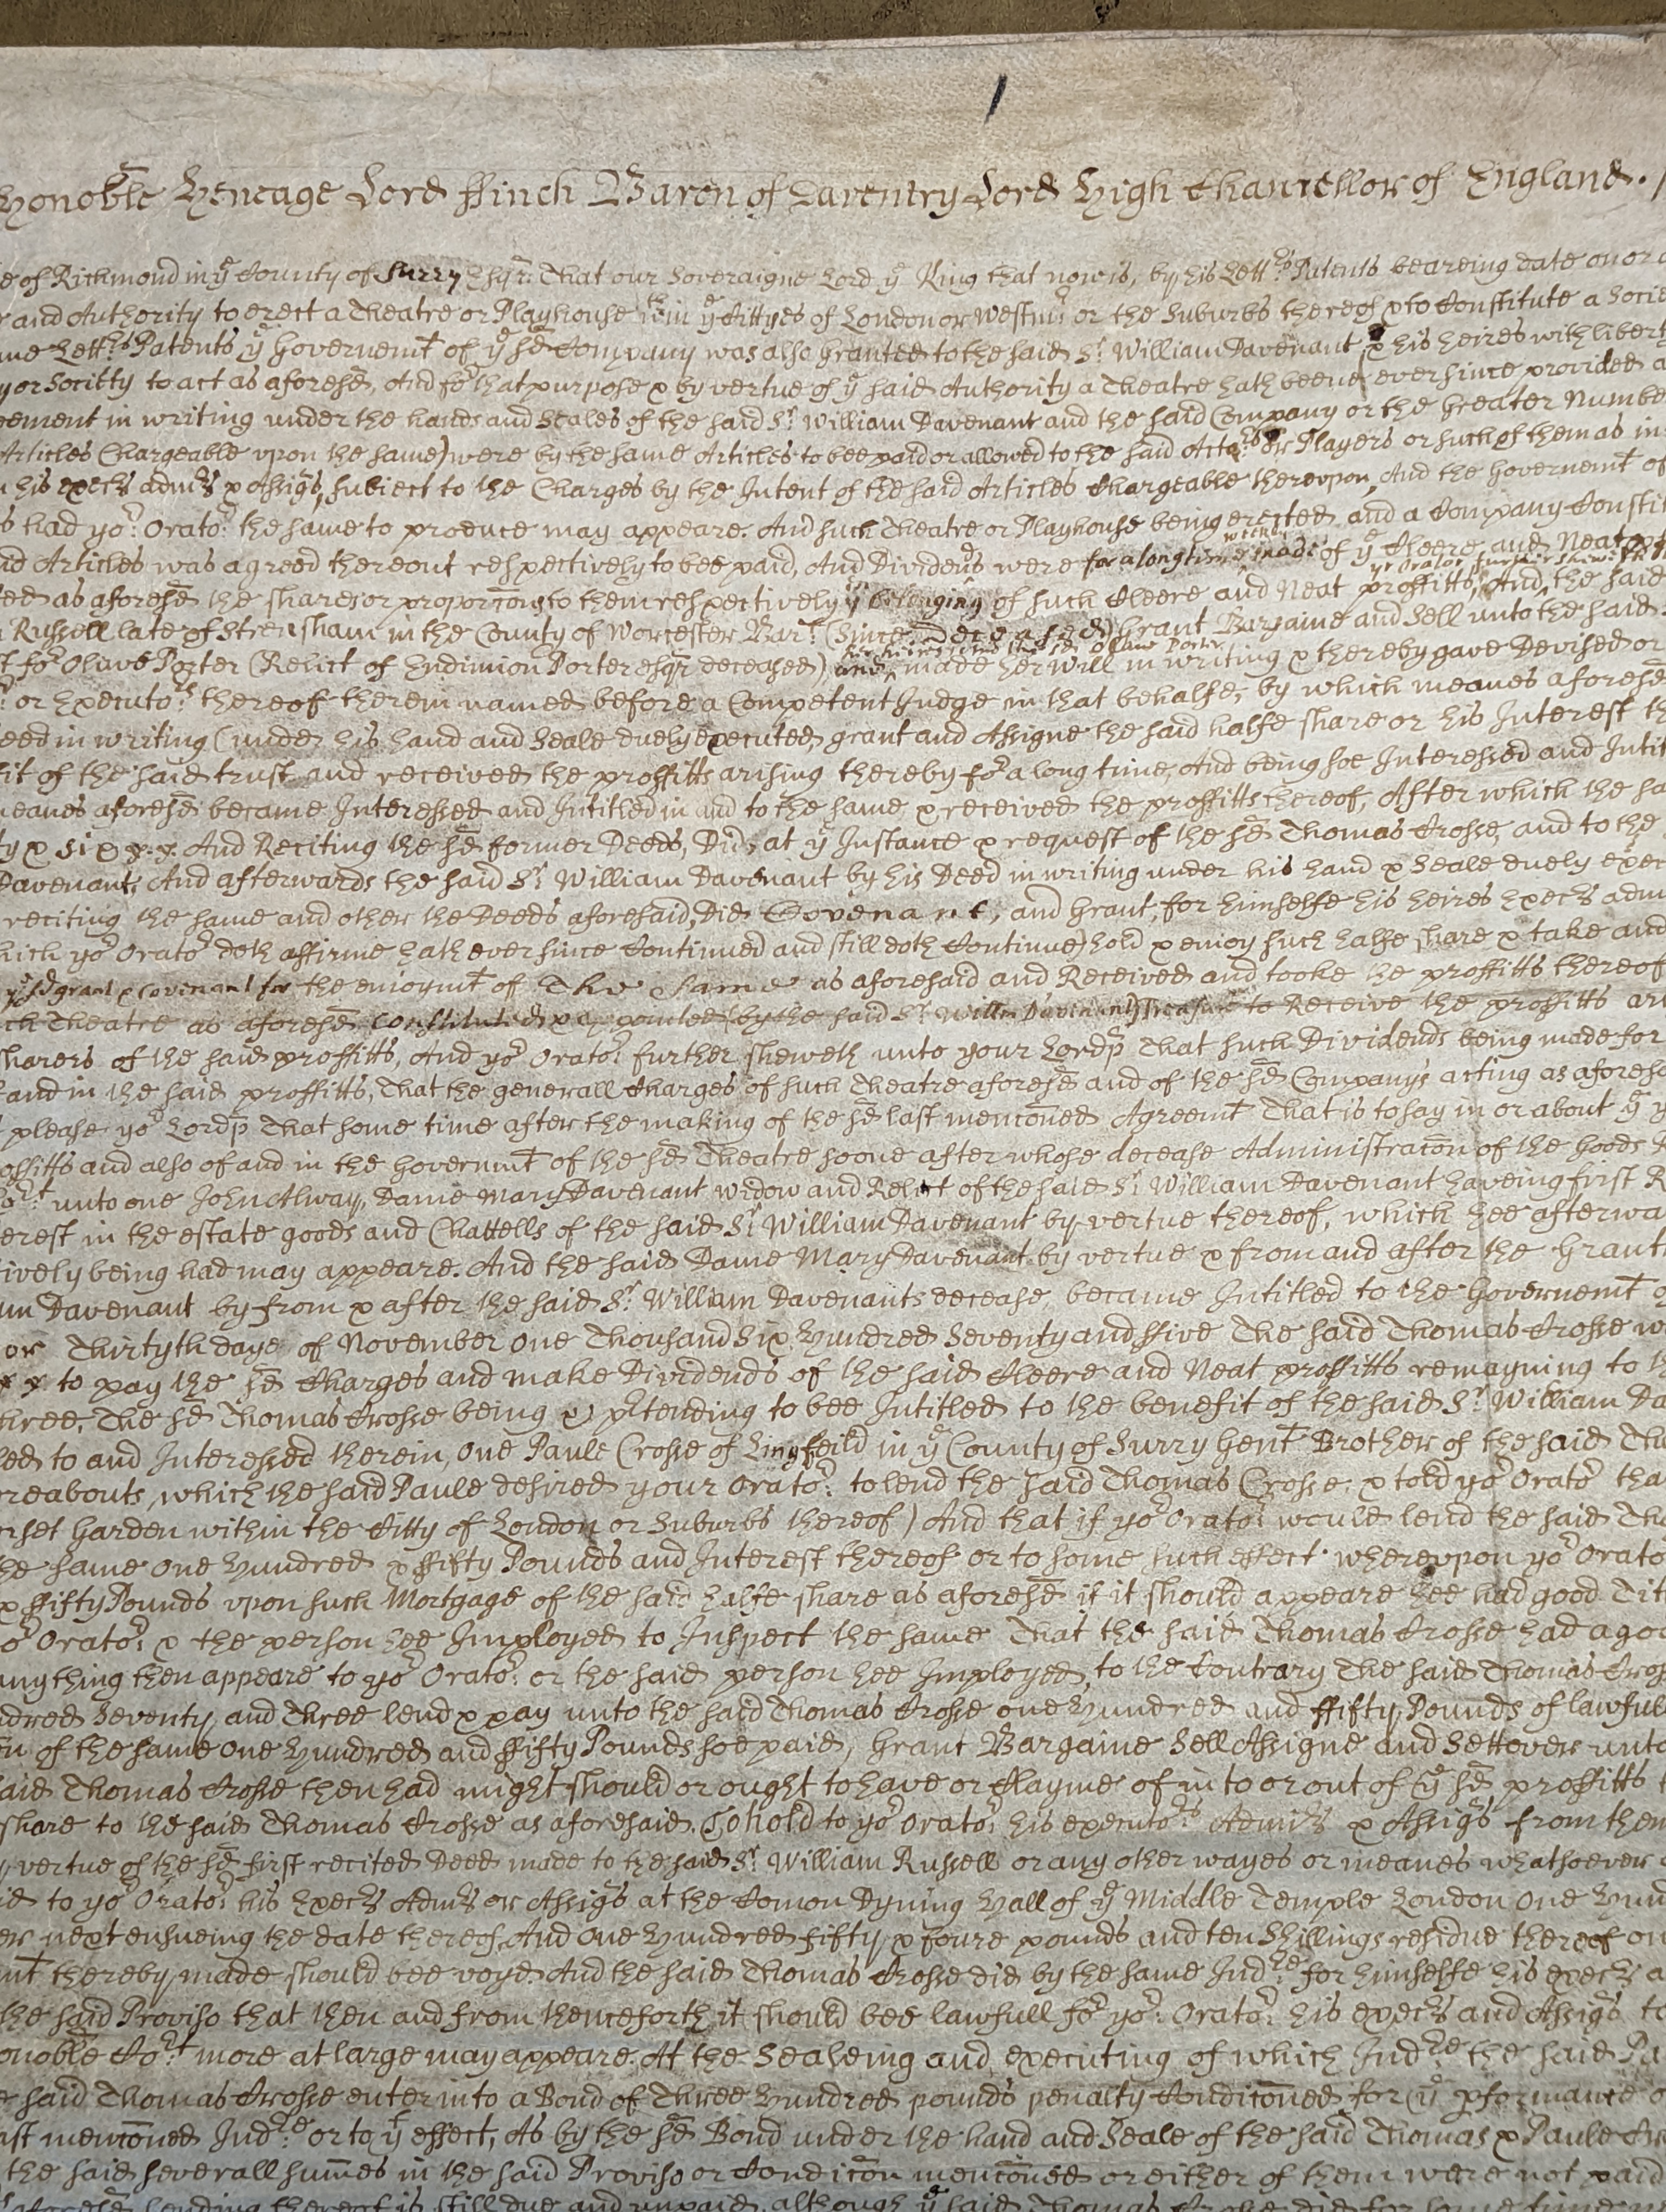 Honoble Heneage Lord ffinch Baron of Daventry Lord High Chancellor of England.
of Richmond in ye County of Surry Esqr. That our Soveraigne Lord ye King that now is, by his Letters Patents beareing date on or
and Authority to erect a Theatre or Playhouse wthin ye Cittyes of London or Westmr or the Suburbs thereof & to Constitute a
Letters Patents ye Governemt of ye sd Company was also Granted to the said Sr William Davenant & his heires with
or Society to act as aforesd, And for that purpose & by vertue of ye said Authority a Theatre hath beene ever since provided
in writing under the hands and Seales of the said Sr William Davenant and the said Company or the Greater
Articles Chargeable vpon the same) were by the same Articles to bee paid or allowed to the said Actors or Players or such of them as in
his execrs admrs & Assignes, subiect to the Charges by the Intent of the said Articles Chargeable therevpon, And the Governemt of
had yor Orator the same to produce may appeare. And such Theatre or Playhouse being erected and a Company
Articles was agreed thereout respectively to bee paid, And Dividends were for a long time weekly made of ye Cleere and Neat
as aforesd the shares or proporcons to them respectively belonging of such Cleere and Neat proffitts, And yr Orator further sheweth the said
Russell late of Strensham in the County of Worcester Bart (since Deceased) Grant Bargaine and Sell unto the said
for Olave Porter (Relict of Endimion Porter Esqr deceased) and made her Will in writing & thereby gave Devised or
or Executors thereof therein named before a Competent Judge in that behalfe, by which meanes aforesd
in writing (under his hand and Seale duely executed, grant and Assigne the said halfe share or his Interest
of the said trust and received the proffitts arising thereby for a long time, And being soe Interessed and
meanes aforesd became Interessed and Intitled in and to the same & received the proffitts thereof, After which the
& six And Reciting the sd former Deeds, Did at ye Instance & request of the sd Thomas Crosse, and to the
Davenant, And afterwards the said Sr William Davenant by his Deed in writing under his hand & Seale duely
reciting the same and other the Deeds aforesaid, Did Covenant, and Grant, for himselfe his heires Execrs
which yor Orator doth affirme hath ever since Continued and still doth Continue) hold & enioy such halfe share & take and
grant & Covenant for the enioymt of The Same as aforesaid and Received and tooke the proffitts thereof
Theatre as aforesd Constituted & appointed (by the said Sr Willm Davenant) Treasurer to Receive the proffitts
sharers of the said proffitts, And yor Orator further sheweth unto your Lordp That such Dividends being made for
and in the said proffitts, That the generall Charges of such Theatre aforesd and of the sd Companys acting as
please yor Lordp That some time after the making of the sd last menconed Agreemt That is to say in or about ye
proffitts and also of and in the Governmt of the sd Theatre soone after whose decease Administracon of the Goods
unto one John Alway, Dame Mary Davenant widow and Relict of the said Sr William Davenant haveing first
in the estate goods and Chattells of the said Sr William Davenant by vertue thereof, which hee
being had may appeare. And the said Dame Mary Davenant by vertue & from and after the
Davenant by from & after the said Sr William Davenants decease, became Intitled to the Governemt
or Thirtyth daye of November One Thousand Six Hundred Seventy and ffive The said Thomas Crosse
to pay the sd Charges and make Dividends of the said Cleere and Neat proffitts remayning to
three, The sd Thomas Crosse being or ptending to bee Intitled to the benefit of the said Sr William
to and Interessed therein, One Paule Crosse of Lingfeild in ye County of Surry Gent Brother of the said
which the said Paule desired your Orator to lend the said Thomas Crosse, & told yor Orator
Garden within the Citty of London or Suburbs thereof) And that if yor Orator would lend the said
same One Hundred & ffifty Pounds and Interest thereof or to some such effect wherevpon yor
& ffifty Pounds vpon such Mortgage of the said halfe share as aforesd if it should appeare hee had good
yor Orator & the person hee Imployed to Inspect the same That the said Thomas Crosse had a
any thing then appeare to yor Orator or the said person hee Imployed, to the Contrary The said Thomas
Seventy and Three lend & pay unto the said Thomas Crosse one Hundred and ffifty Pounds of lawfull
of the same One Hundred and ffifty Pounds soe paid, Grant Bargaine Sell Assigne and Settover unto
said Thomas Crosse then had might should or ought to have or Clayme of in to or out of ye sd proffitts
share to the said Thomas Crosse as aforesaid. To hold to yor Orator his executors Admrs & Assignes from
vertue of the sd first recited Deed made to the said Sr William Russell or any other wayes or meanes whatsoever
to yor Orator his Execrs Admrs or Assignes at the Comon Dyning Hall of ye Middle Temple London One
next ensueing the date thereof, And One Hundred fifty & foure pounds and ten Shillings residue thereof
thereby made should bee voyd. And the said Thomas Crosse did by the same Indre for himselfe his execrs
the said Proviso that then and from thenceforth it should bee lawfull for yor Orator his execrs and Assignes to
more at large may appeare. At the Sealeing and executing of which Indre the said
said Thomas Crosse enter into a Bond of Three Hundred pounds penalty Condiconed for ye pformance
last menconed Indre or to yt effect, As by the sd Bond under the hand and Seale of the said Thomas & Paule
the said severall summes in the said Proviso or Condicon menconed or either of them were not paid
lending thereof is still due and unpaid, although ye said Thomas Crosse did for